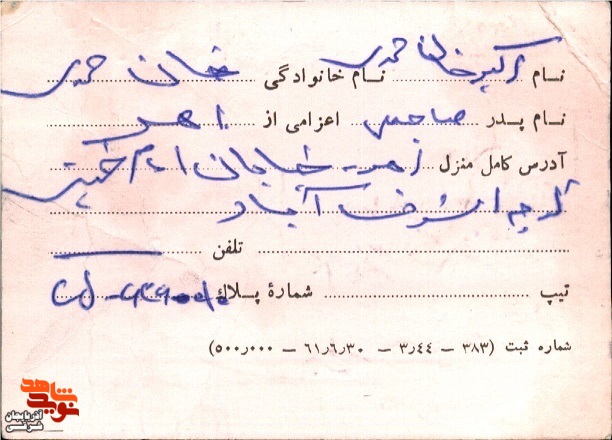 نام اکبر خان احمدی نام خانوادگی خان احمدی
نام پدر اعزامی از اهر
آدرس کامل منزل اهر - خیابان امام خمینی
کوچه اشرف آباد
تلفن
تیپ شمارهٔ پلاك
شماره ثبت (۳۸۳ – ۳٫۴۴ – ۶۱٫۶٫۳۰ – ۵۰۰٫۰۰۰)
نوید شاهد
آذربایجان شرقی